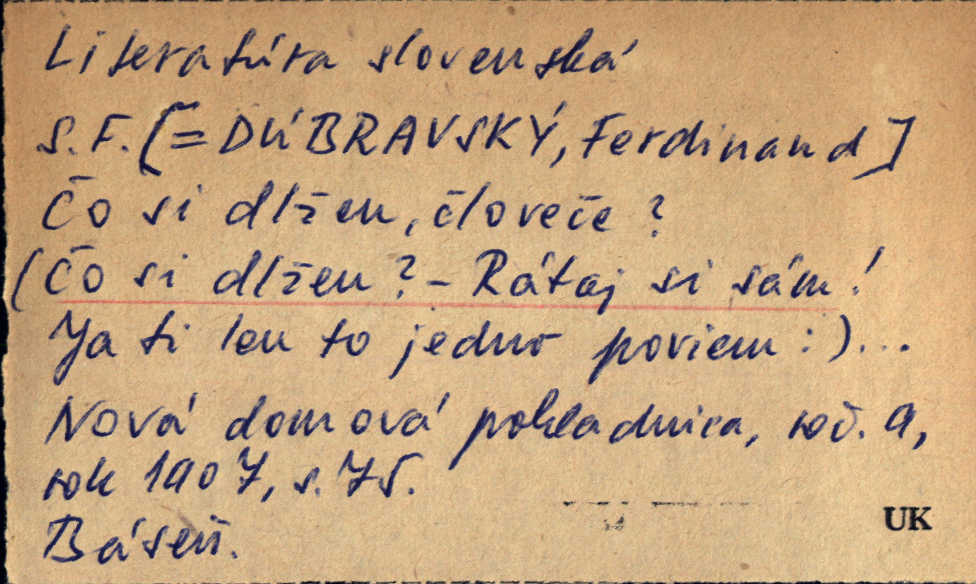 Literatúra slovenská
S.F. [= DÚBRAVSKÝ, Ferdinand]
Čo si dlžen, človeče?
(Čo si dlžen? – Rátaj si sám!
Ja ti len to jedno poviem:)...
Nová domová pokladnica, roč. 9,
rok 1907, s. 75.
Báseň.
UK